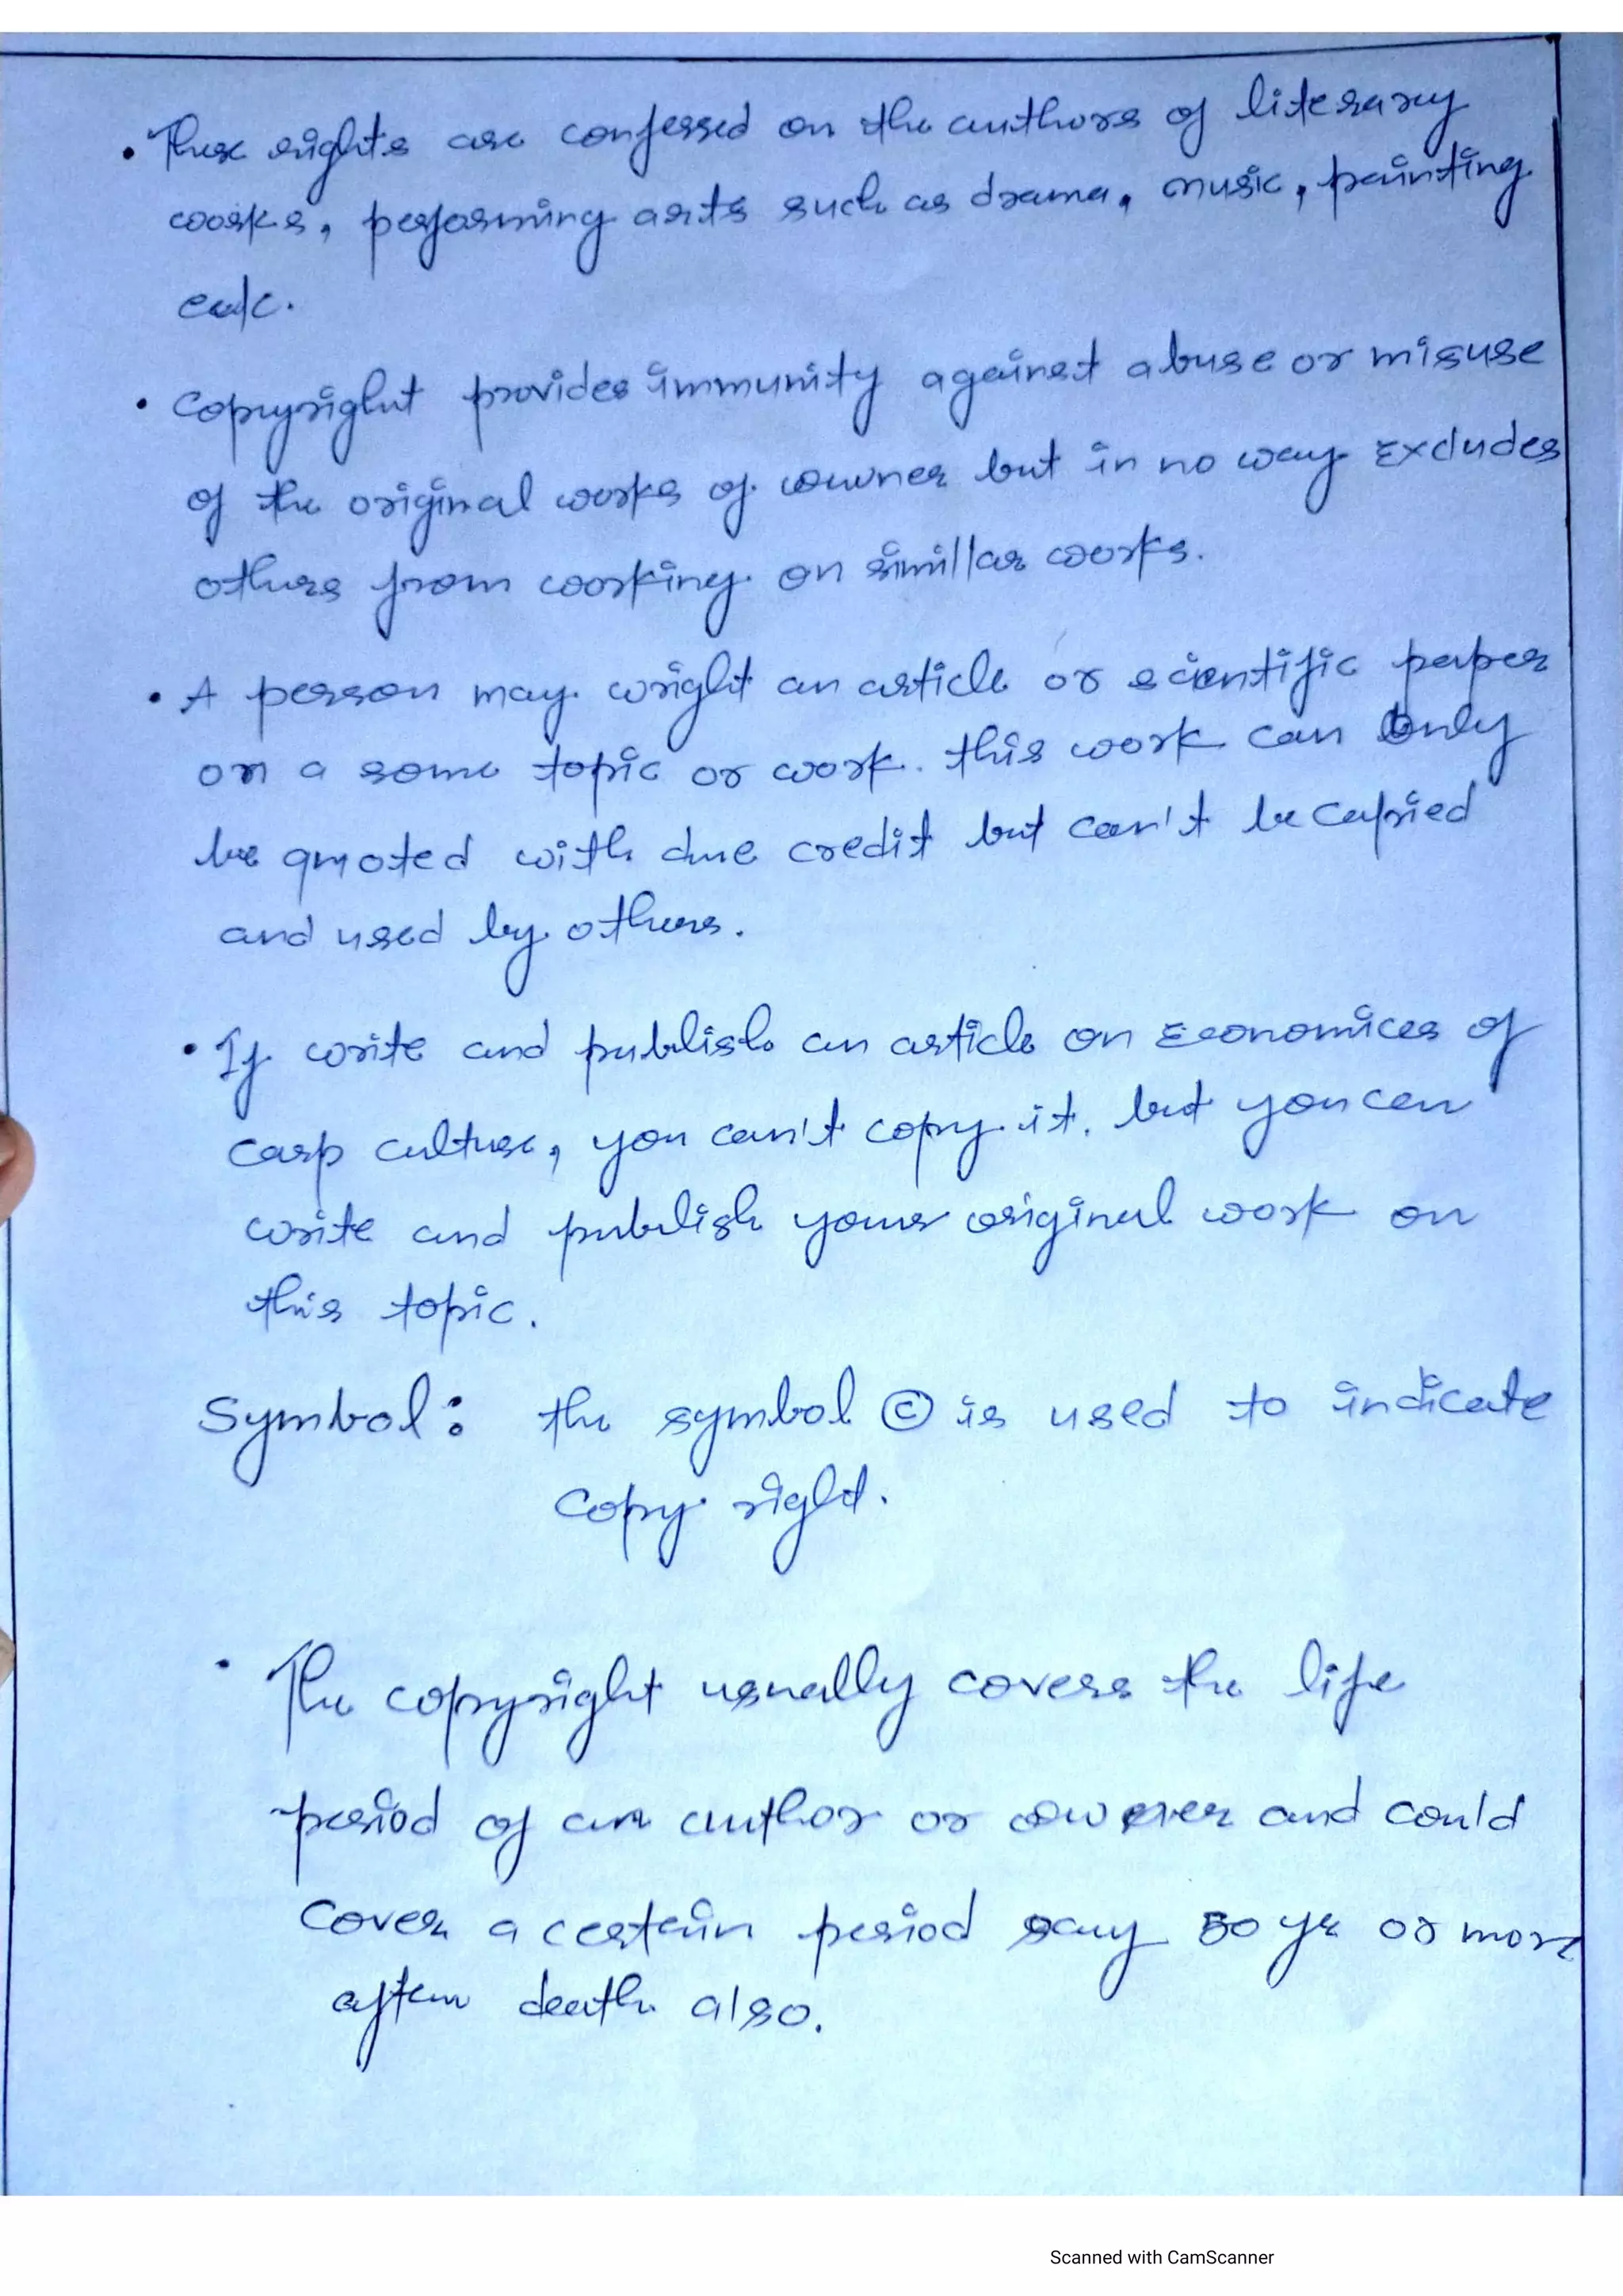 • These rights are conferred on the authors of literary
works, performing arts such as drama, music, painting
etc.
• Copyright provides immunity against abuse or misuse
of the original works of owner but in no way Excludes
others from working on simillar works.
• A person may wright an article or scientific paper
on a some topic or work. this work can only
be quoted with due credit but can't be copied
and used by others.
• If write and publish an article on Economices of
carp culture, you can't copy it. but you can
write and publish your original work on
this topic.
Symbol: the symbol © is used to indicate
Copy right.
• The copyright usually covers the life
period of an author or owner and could
cover a certain period say 50 yr or more
after death also.
Scanned with CamScanner